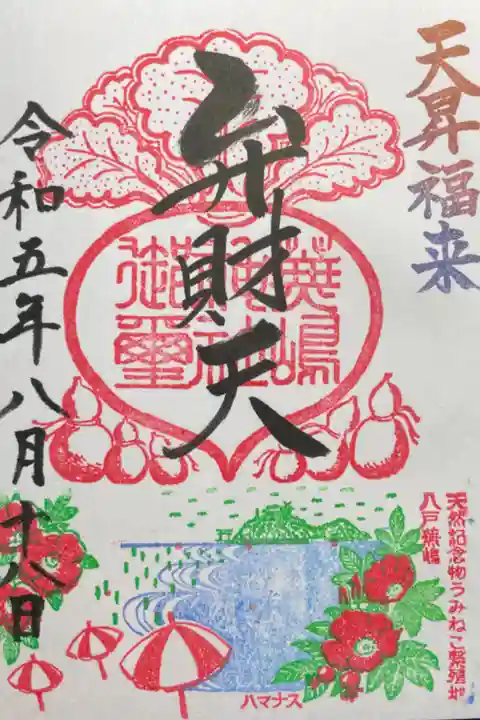 天昇福来
弁財天
蕪嶋
神社
御璽
令和五年八月十八日
天然記念物うみねこ繁殖地
八戸蕪嶋
ハマナス